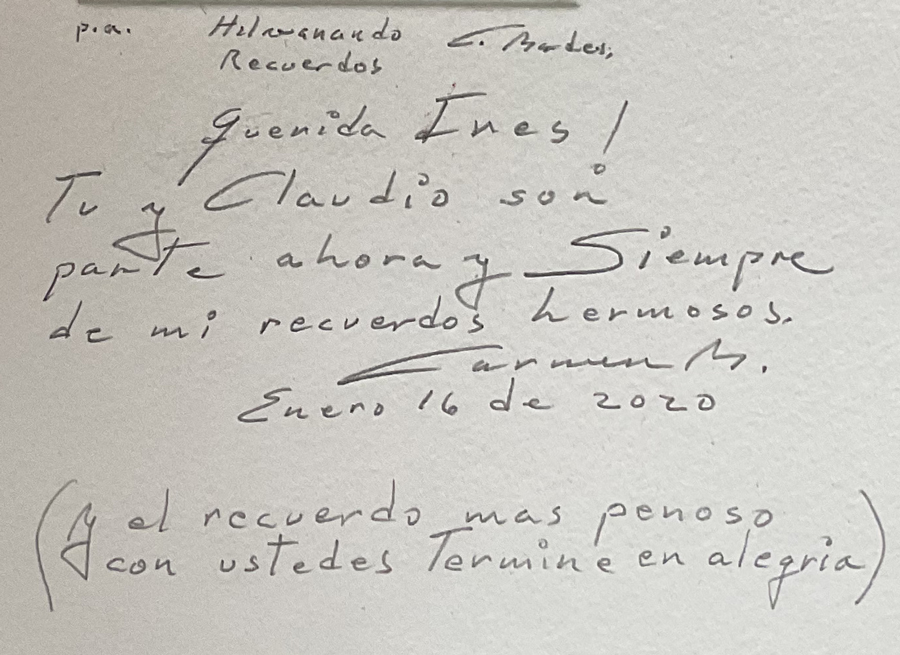 p.a. Hilvanando C. Bardes,
Recuerdos
Querida Ines!
Tu y Claudio son
parte ahora y Siempre
de mi recuerdos hermosos.
Carmen B.
Enero 16 de 2020
(y el recuerdo mas penoso
con ustedes Termine en alegria)